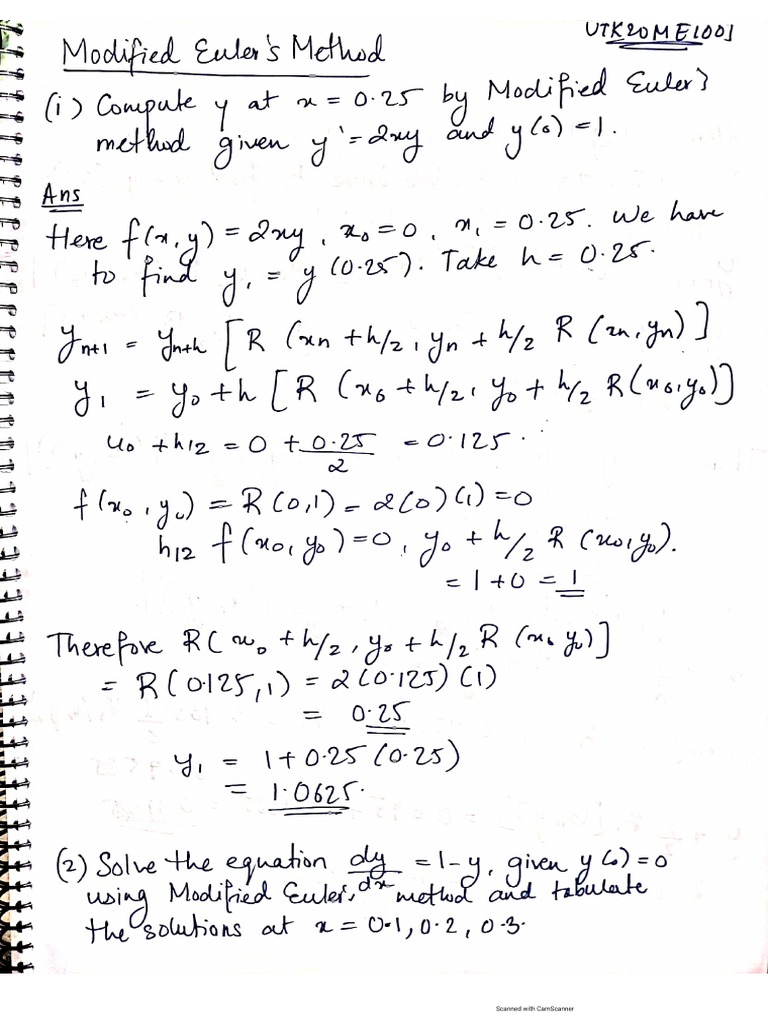 UTK20ME1001
Modified Euler's Method
(i) Compute y at x = 0.25 by Modified Euler's
method given y' = 2xy and y(0) = 1.
Ans
Here f(x,y) = 2xy, x₀ = 0, x₁ = 0.25. We have
to find y₁ = y(0.25). Take h = 0.25.
yₙ₊₁ = yₙ₊ₕ [R (xₙ + h/2, yₙ + h/2 R (xₙ, yₙ)]
y₁ = y₀ + h [R (x₀ + h/2, y₀ + h/2 R(x₀, y₀)]
u₀ + h/2 = 0 + 0.25/2 = 0.125.
f(x₀, y₀) = R(0,1) = 2(0)(1) = 0
h/2 f(x₀, y₀) = 0, y₀ + h/2 R (x₀, y₀).
= 1 + 0 = 1
Therefore R( x₀ + h/2, y₀ + h/2 R (x₀ y₀)]
= R(0.125, 1) = 2(0.125)(1)
= 0.25
y₁ = 1 + 0.25 (0.25)
= 1.0625.
(2) Solve the equation dy/dx = 1 - y, given y(0) = 0
using Modified Euler's method and tabulate
the solutions at x = 0.1, 0.2, 0.3.
Scanned with CamScanner